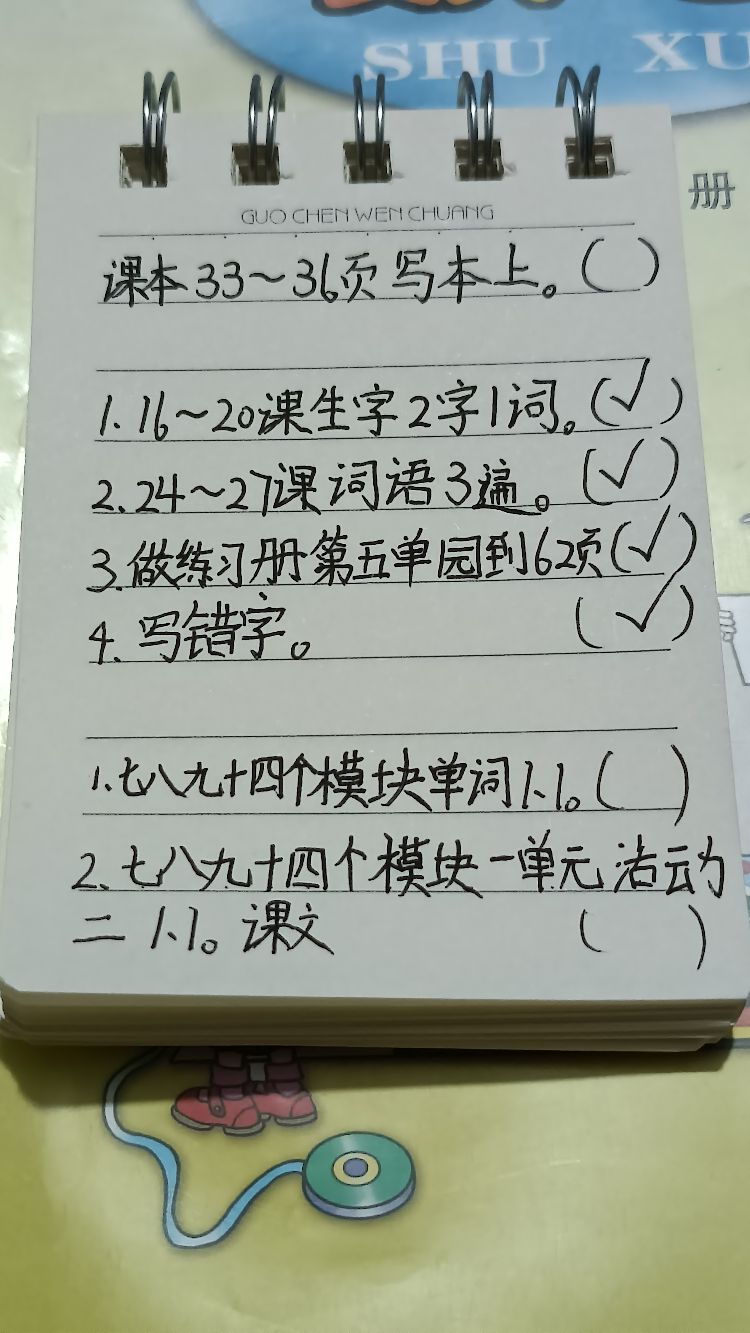 SHU XU
册
GUO CHEN WEN CHUANG
课本33~36页写本上。( )
1.16~20课生字2字1词。(√)
2.24~27课词语3遍。(√)
3.做练习册第五单园到62页(√)
4.写错字。(√)
1.七八九十四个模块单词1.1。( )
2.七八九十四个模块一单元活动
二 1.1。课文 ( )